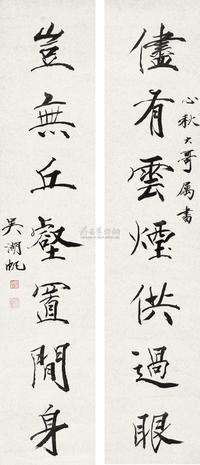 儘有雲煙供過眼
心秋大哥属書
豈無丘壑置閒身
吳湖帆